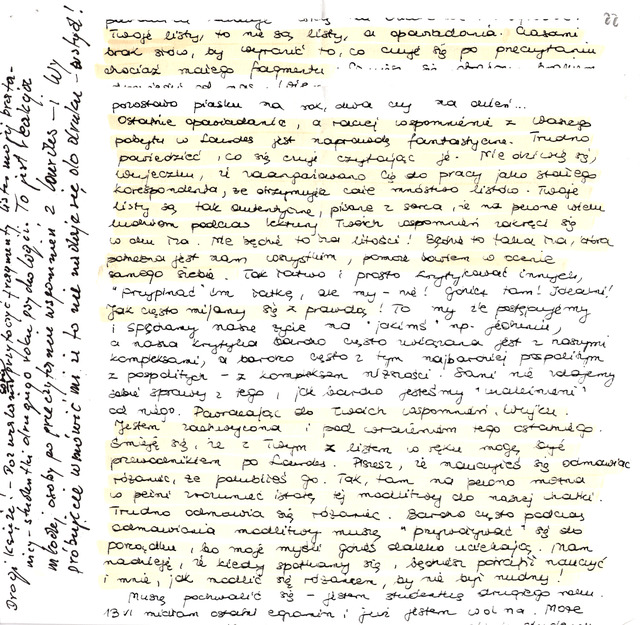 22
Twoje listy, to nie są listy, a opowiadania. Czasami
brak słów, by wyrazić to, co czuje się po przeczytaniu
chociaż małego fragmentu.
pozostało piasku na rok, dwa czy na dzień...
Ostatnie opowiadanie, a raczej wspomnienie z Waszego
pobytu w Lourdes jest naprawdę fantastyczne. Trudno
powiedzieć, co się czuje czytając je. Nie dziwię się,
Wujeczku, iż zaangażowano Cię do pracy jako stałego
korespondenta, że otrzymuje całe mnóstwo listów. Twoje
listy są tak autentyczne, pisane z serca, iż na pewno wielu
ludziom podczas lektury Twoich wspomnień zakręci się
w oku łza. Nie będzie to łza litości! Będzie to taka łza, która
potrzebna jest nam wszystkim, pomoże bowiem w ocenie
samego siebie. Tak łatwo i prosto krytykować innych,
"przypinać" im łatkę, ale my - nie! Gdzież tam! Idealni!
Jak często mijamy się z prawdą! To my źle postępujemy
i spędzamy nasze życie na "jakimś" np. jedzeniu,
a nasza krytyka bardzo często związana jest z naszymi
kompleksami, a bardzo często z tym najbardziej pospolitym
z pospolitych - z kompleksem niższości! Sami nie zdajemy
sobie sprawy z tego, jak bardzo jesteśmy "uzależnieni"
od niego. Powracając do Twoich wspomnień, Wujku.
Jestem zachwycona i pod wrażeniem tego ostatniego.
Śmieję się, że z Twym listem w ręku mogę być
przewodnikiem po Lourdes. Piszesz, iż nauczyłeś się odmawiać
różaniec, że polubiłeś go. Tak, tam na pewno można
w pełni zrozumieć istotę tej modlitwy do naszej Matki.
Trudno odmawia się różaniec. Bardzo często podczas
odmawiania modlitwy muszę "przywoływać" się do
porządku, bo moje myśli gdzieś daleko uciekają. Mam
nadzieję, że kiedy spotkamy się, będziesz potrafił nauczyć
i mnie, jak modlić się różańcem, by nie był nudny!
Muszę pochwalić się - jestem studentką drugiego roku.
13 VI miałam ostatni egzamin i już jestem wolna. Może
Drogi Księże! - Pozwalam sobie przytoczyć fragmenty listu mojej brata-
nicy - studentki drugiego roku psychologii. To jest reakcja
młodej osoby po przeczytaniu wspomnień z Lourdes - i Wy
próbujecie wmówić mi iż to nie nadaje się do druku - wstyd!